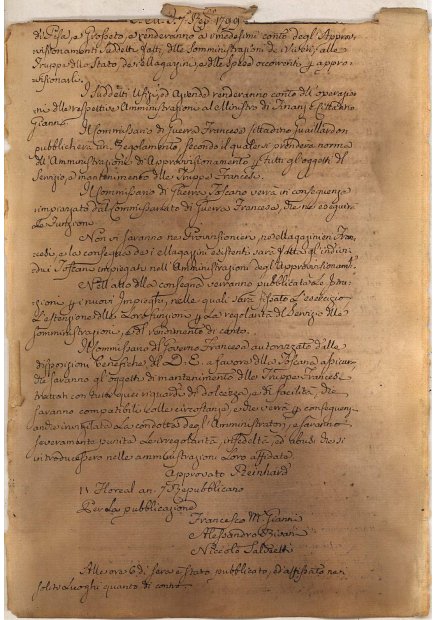 di Pisa, e Grosseto, e renderanno a' medesimi conto degl'Approv-
visionamenti suddetti fatti, delle Somministrazioni di Viveri alle
Truppe, dello Stato de' Magazzini, e delle Spese occorrenti p. approv-
visionarli.
I suddetti Uffizj, ed Aziende renderanno conto dell'operazio-
ni delle respettive Amministrazioni al Ministro di Finanze Cittadino
Gianni.
Il Commissario di Guerra Francese Cittadino Juaillardon
pubblicherà un Regolamento, secondo il quale si prenderà norma
di Amministrazione, di Approvvisionamento p. tutti gl'oggetti di
Servizio, e mantenimento delle Truppe Francesi.
Il Commissario di Guerra Toscano verrà in conseguenza
impiegato dal Commissariato di Guerra Francese, che ne eseguirà
le Funzioni.
Non vi saranno nè Provvisionieri, nè Magazzinieri Fran-
cesi, e la consegna de' Magazzini esistenti sarà fatta agl'indivi-
dui Toscani impiegati nell'Amministrazioni degl'Approvvisionamti.
Nell'atto della consegna verranno pubblicate le Istru-
zioni p. i nuovi Impiegati, nelle quali sarà fissato l'esercizio
l'estenzione delle loro funzioni p. la regolarità del Servizio delle
Somministrazioni, e di rendimento di conto.
Il Commissario del Governo Francese autorizzato dalle
disposizioni benefiche del D. E. a favore della Toscana assicura
che saranno gl'oggetti di mantenimento delle Truppe Francesi
trattati con tutti quei riguardi di dolcezza, e di facilità, che
saranno compatibili colle circostanze, e che verrà p. conseguen-
za invigilata la condotta degl'Amministratori, e saranno
severamente punite le irregolarità, infedeltà, ed abusi che si
introducessero nelle amministrazioni loro affidate.
Approvato Reinhard
Floreal an. 7 Repubblicano
Per la pubblicazione
Francesco M. Gianni
Alessandro Rivani
Niccolò Salvetti
Alle ore 6 di sera è stato pubblicato, ed affisso ne'
soliti Luoghi quanto di contro.